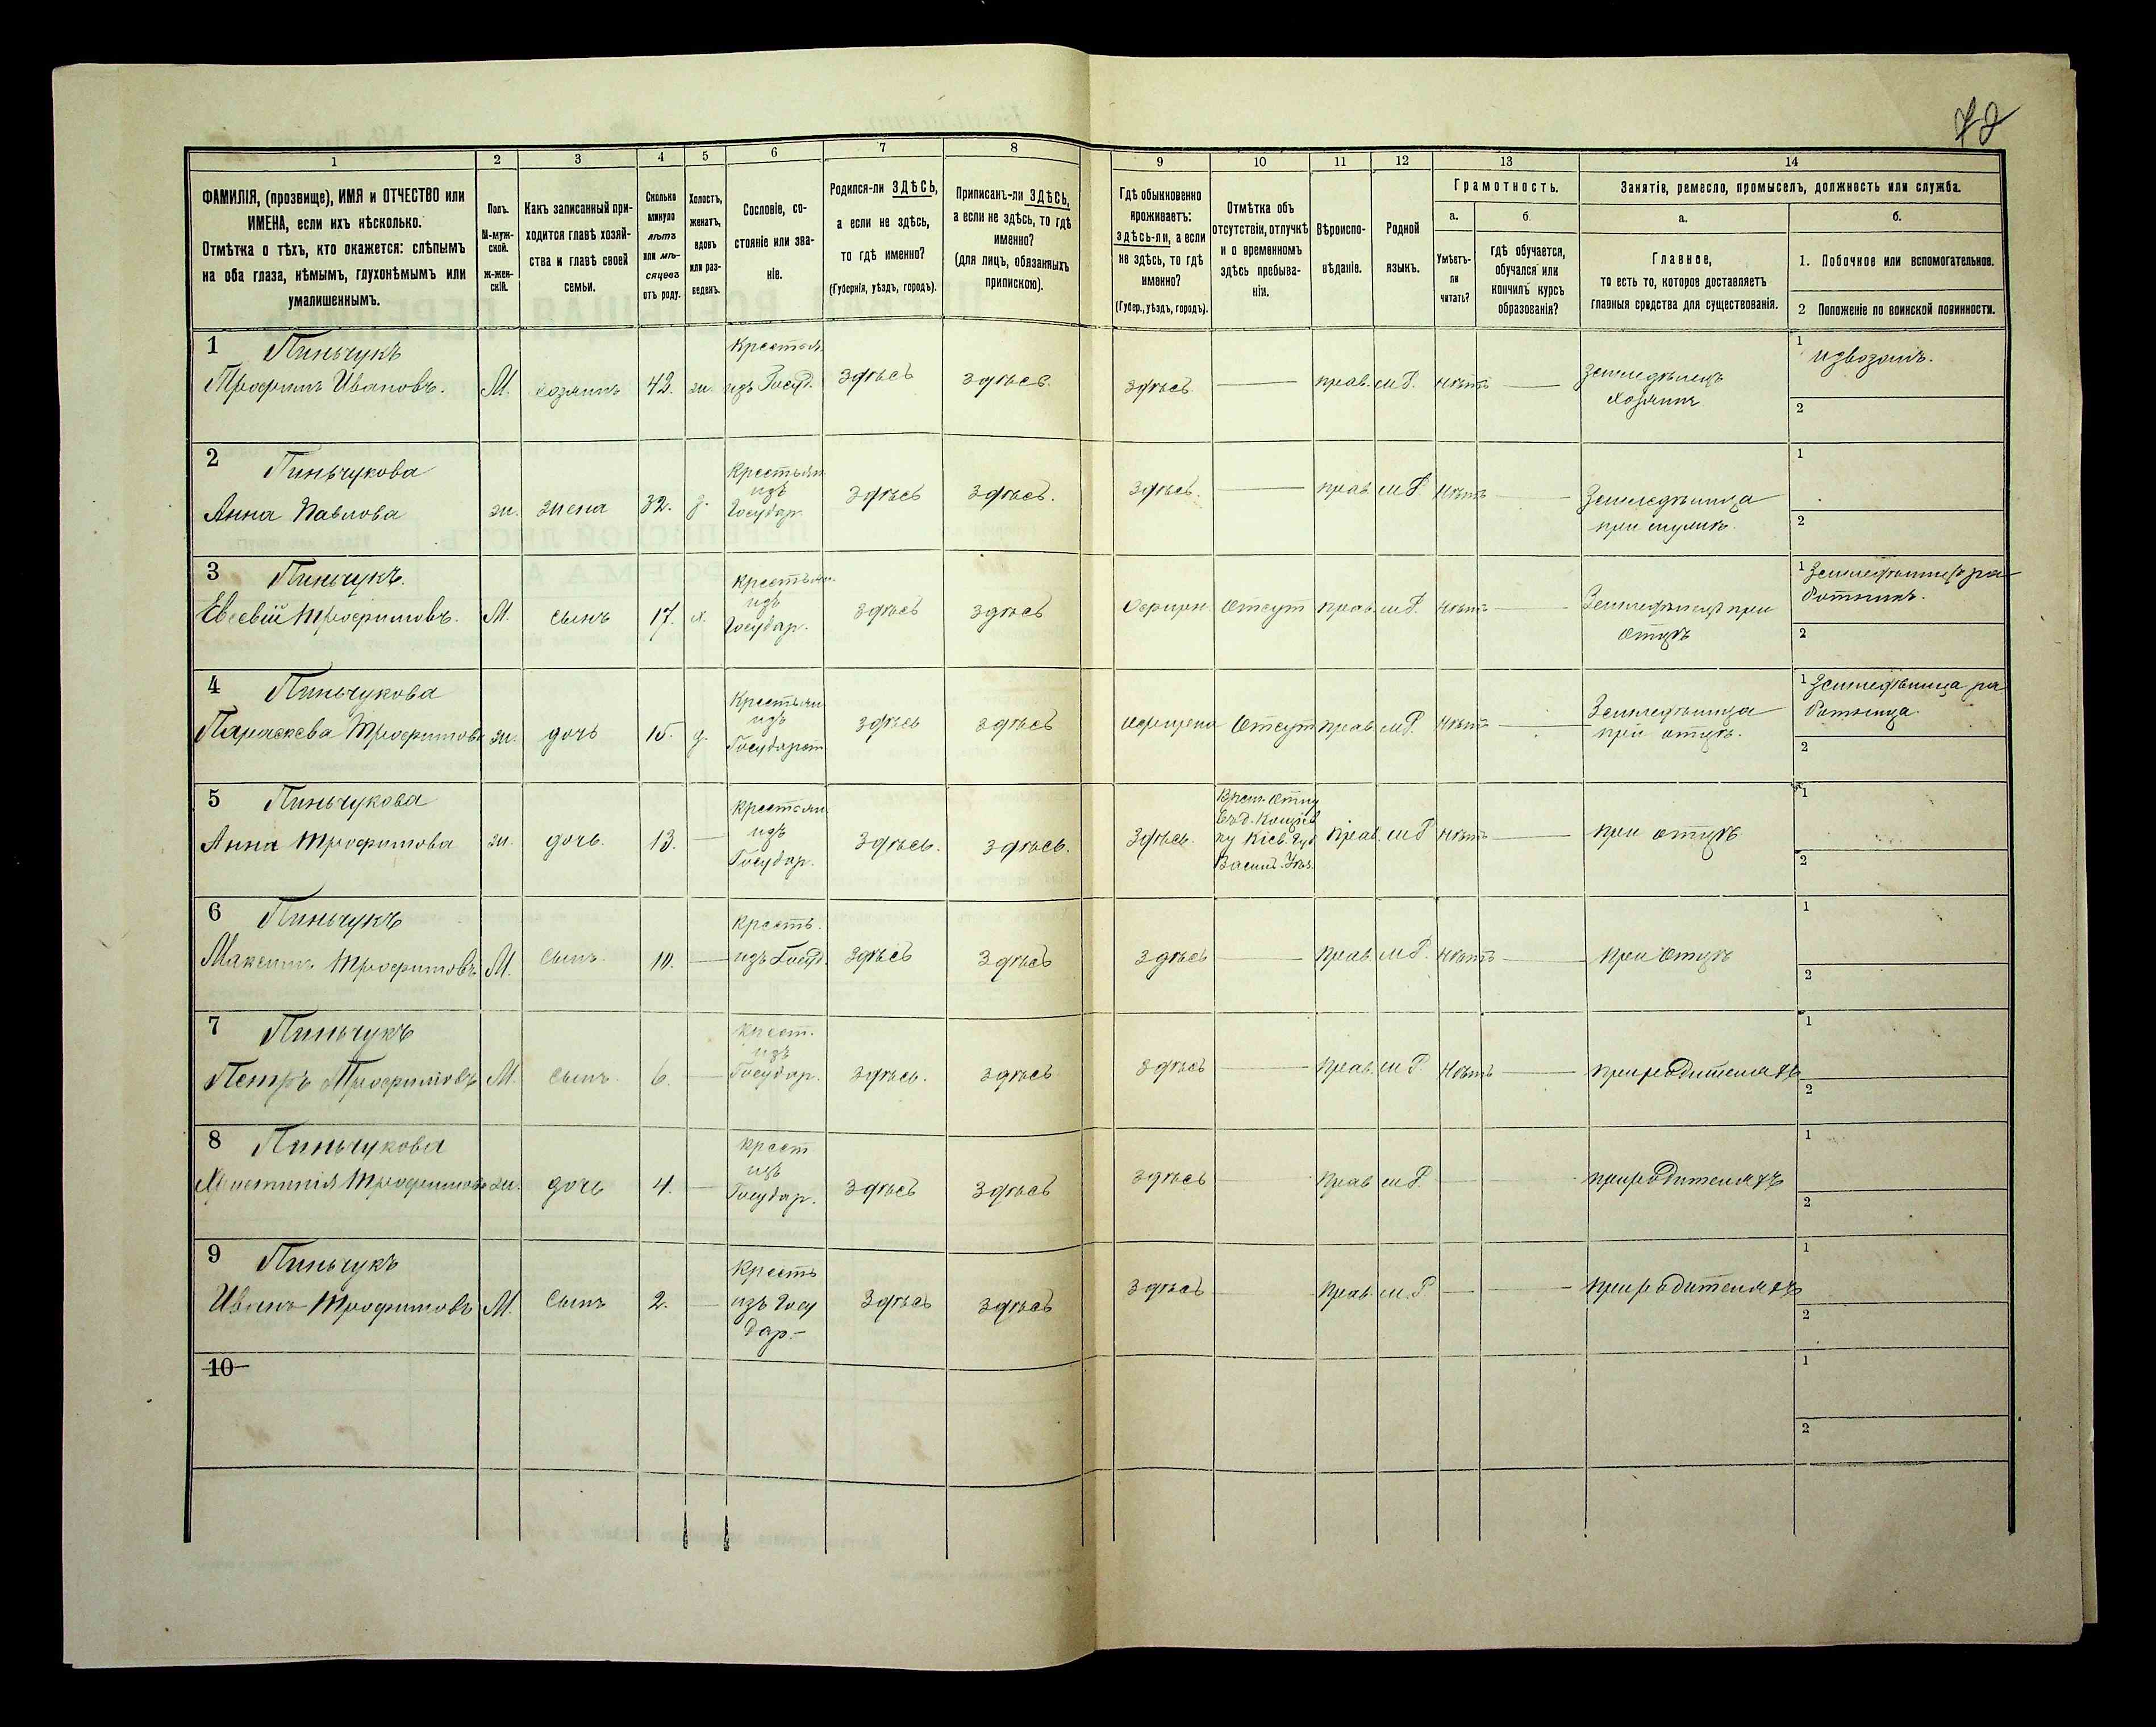 72
1 2 3 4 5 6 7 8 9 10 11 12 13 14
ФАМИЛІЯ, (прозвище), ИМЯ и ОТЧЕСТВО или
ИМЕНА, если ихъ нѣсколько.
Отмѣтка о тѣхъ, кто окажется: слѣпымъ
на оба глаза, нѣмымъ, глухонѣмымъ или
умалишеннымъ.
Полъ.
М-муж-
ской.
ж-жен-
скій.
Какъ записанный при-
ходится главѣ хозяй-
ства и главѣ своей
семьи.
Сколько
минуло
лѣтъ
или мѣ-
сяцевъ
отъ роду.
Холостъ,
женатъ,
вдовъ
или раз-
веденъ.
Сословіе, со-
стояніе или зва-
ніе.
Родился-ли ЗДѢСЬ,
а если не здѣсь,
то гдѣ именно?
(Губернія, уѣздъ, городъ).
Приписанъ-ли ЗДѢСЬ,
а если не здѣсь, то гдѣ
именно?
(для лицъ, обязанныхъ
припискою).
Гдѣ обыкновенно
проживаетъ:
здѣсь-ли, а если
не здѣсь, то гдѣ
именно?
(Губер., уѣздъ, городъ).
Отмѣтка объ
отсутствіи, отлучкѣ
и о временномъ
здѣсь пребыва-
ніи.
Вѣроиспо-
вѣданіе.
Родной
языкъ.
Грамотность.
а.
Умѣетъ-
ли
читать?
б.
гдѣ обучается,
обучался или
кончилъ курсъ
образованія?
Занятіе, ремесло, промыселъ, должность или служба.
а.
Главное,
то есть то, которое доставляетъ
главныя средства для существованія.
б.
1. Побочное или вспомогательное.
2 Положеніе по воинской повинности.
1 Пиньчукъ
Трофимъ Ивановъ. М. хозяинъ 42. ж. Крестьян. изъ Госуд. здѣсь здѣсь. здѣсь. — прав. м.Р. нѣтъ — Земледѣлецъ
хозяинъ
1 извозомъ.
2
2 Пиньчукова
Анна Павлова ж. жена 32. з. Крестьян изъ Государ. здѣсь здѣсь. здѣсь. — прав м.Р. нѣтъ — Земледѣлица
при мужѣ
1
2
3 Пиньчукъ.
Евсевій Трофимовъ. М. сынъ 17. х. Крестьян. изъ Государ. здѣсь здѣсь Отсут прав. м.Р. нѣтъ — Земледѣлецъ при
отцѣ
1 Земледѣлецъ ра
ботникъ.
2
4 Пиньчукова
Параскева Трофимова ж. дочь 15. д. Крестьян изъ Государст здѣсь здѣсь Отсут прав м.Р. нѣтъ — Земледѣлица
при отцѣ.
1 Земледѣлица ра
ботница
2
5 Пиньчукова
Анна Трофимова ж. дочь. 13. — Крестьян изъ Государ. здѣсь. здѣсь. здѣсь.
Кіев. Губ
Васильк. Уѣз. прав. м.Р нѣтъ — при отцѣ
1
2
6 Пиньчукъ
Максимъ Трофимовъ М. сынъ. 10. — Кресть. изъ Госуд. здѣсь здѣсь здѣсь — прав. м.Р. нѣтъ — при отцѣ
1
2
7 Пиньчукъ
Петръ Трофимовъ М. сынъ. 6. — Крест. изъ Государ. здѣсь. здѣсь здѣсь — прав. м Р. Нѣтъ — при родителяхъ
1
2
8 Пиньчукова
Трофимова ж. дочь 4. — Крест изъ Государ. здѣсь здѣсь здѣсь — прав м.Р — — при родителяхъ
1
2
9 Пиньчукъ
Иванъ Трофимовъ М. сынъ 2. — Кресть изъ Госу дар.- здѣсь здѣсь здѣсь — прав. м.Р — — при родителяхъ
1
2
10
1
2